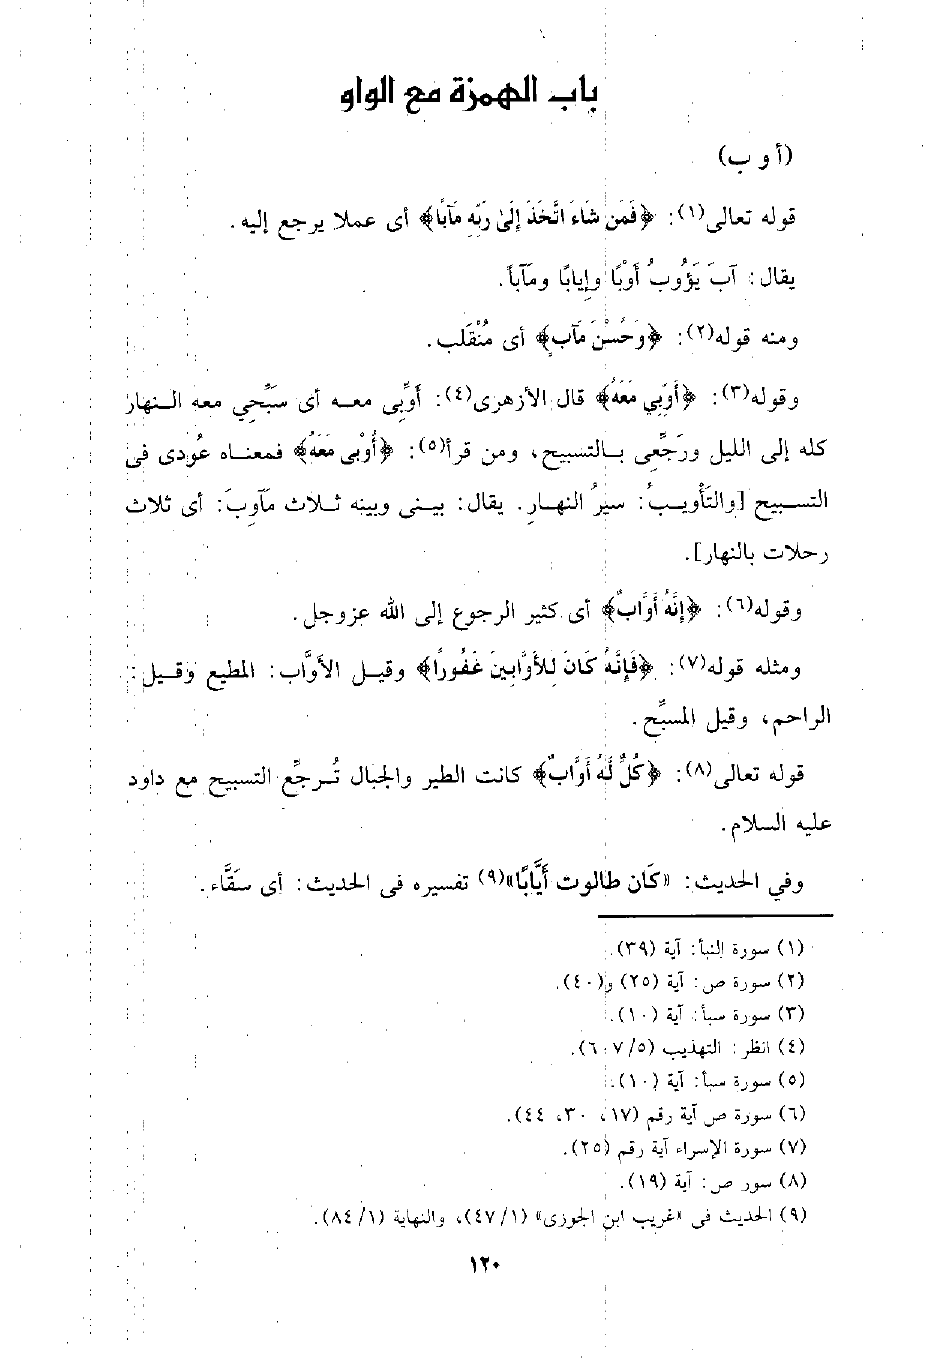 باب الهمزة مع الواو
(أ و ب)
قوله تعالى(١): ﴿فَمَن شَاءَ اتَّخَذَ إِلَىٰ رَبِّهِ مَآبًا﴾ أى عملا يرجع إليه.
يقال: آبَ يَؤُوبُ أوْبًا وإيابًا ومَآباً.
ومنه قوله(٢): ﴿وَحُسْنَ مَآبٍ﴾ أى مُنْقَلب.
وقوله(٣): ﴿أَوِّبِي مَعَهُ﴾ قال الأزهرى(٤): أَوِّبى معه أى سَبِّحي معه النهار
كله إلى الليل ورَجِّعى بالتسبيح، ومن قرأ(٥): ﴿أُوْبى مَعَهُ﴾ فمعناه عُودى فى
التسبيح [والتَأْويبُ: سيرُ النهار. يقال: بينى وبينه ثلاث مَآوِبَ: أى ثلاث
رحلات بالنهار].
وقوله(٦): ﴿إِنَّهُ أَوَّابٌ﴾ أى كثير الرجوع إلى الله عزوجل.
ومثله قوله(٧): ﴿فَإِنَّهُ كَانَ لِلأَوَّابِينَ غَفُورًا﴾ وقيل الأوَّاب: المطيع وقيل:
الراحم، وقيل المسبِّح.
قوله تعالى(٨): ﴿كُلٌّ لَهُ أَوَّابٌ﴾ كانت الطير والجبال تُرجِّع التسبيح مع داود
عليه السلام.
وفي الحديث: «كَان طالوت أَيَّابًا»(٩) تفسيره فى الحديث: أى سَقَّاء.
(١) سورة النبأ: آية (٣٩).
(٢) سورة ص: آية (٢٥) و(٤٠).
(٣) سورة سبأ: آية (١٠).
(٤) انظر: التهذيب (٦٠٧/٥).
(٥) سورة سبأ: آية (١٠).
(٦) سورة ص آية رقم (١٧، ٣٠، ٤٤).
(٧) سورة الإسراء آية رقم (٢٥).
(٨) سور ص: آية (١٩).
(٩) الحديث فى «غريب ابن الجوزى» (٤٧/١)، والنهاية (٨٤/١).
١٢٠